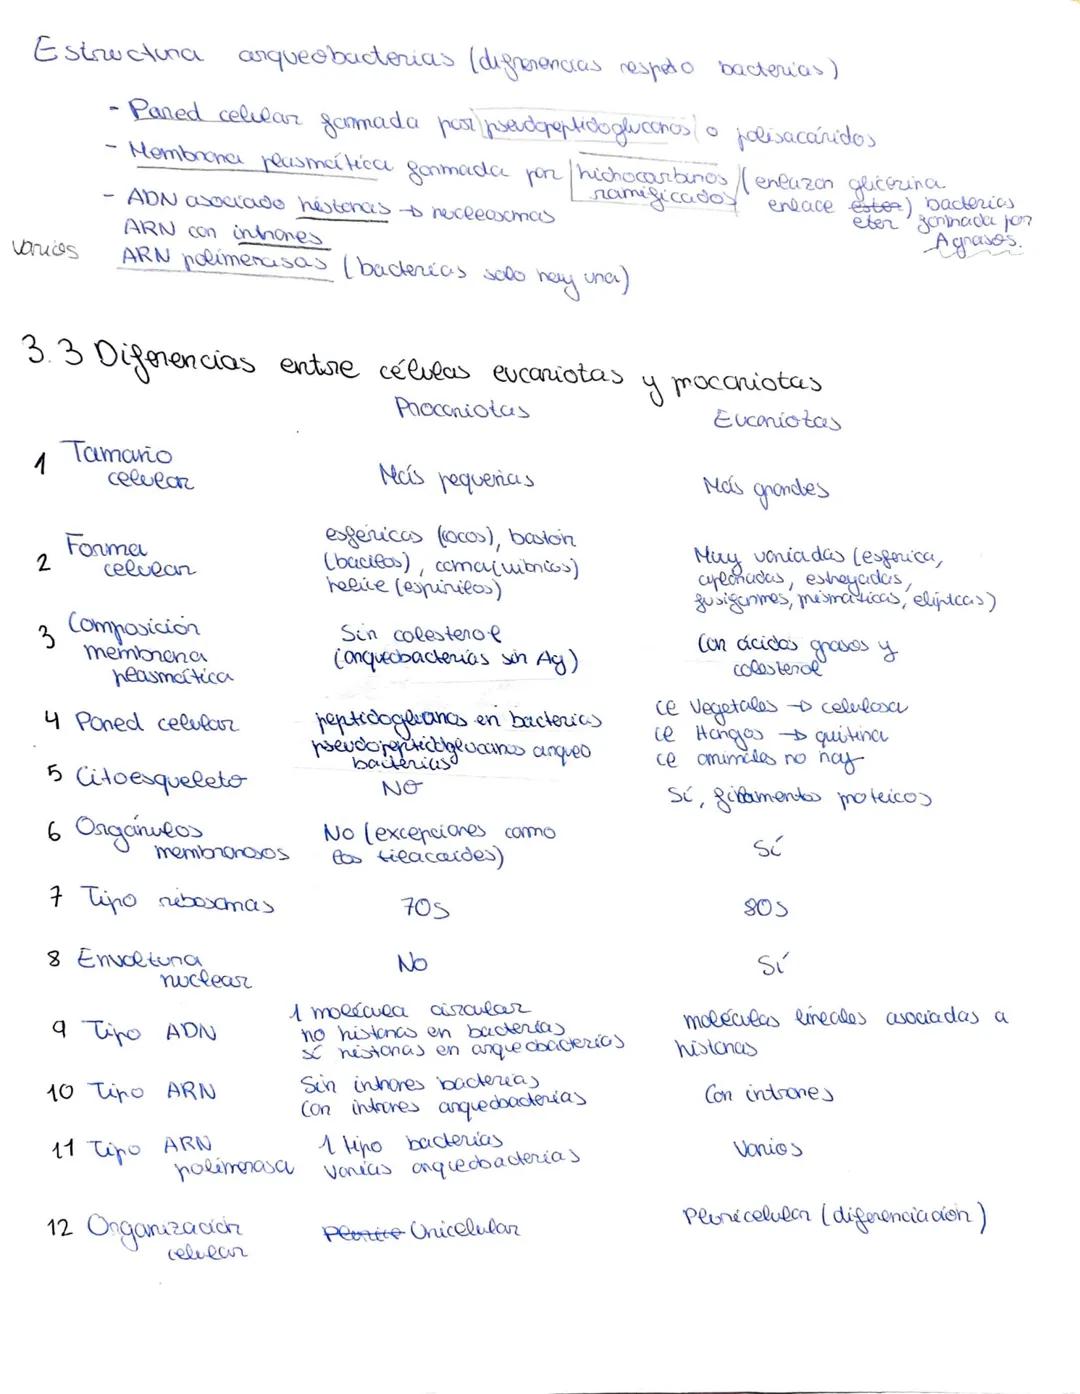 Estructura arqueobacterias (diferencias respeto bacterias)
- Pared celular formada por pseudopeptidoglucanos o polisacáridos
- Membrana plasmática formada por hidrocarburos ramificados (enlazan glicerina enlace ester) éter bacterias formada por Agrasos.
- ADN asociado histonas → nucleosomas
ARN con intrones
varios ARN polimerasas (bacterias solo hay una)
3.3 Diferencias entre células eucariotas y procariotas
Procariotas Eucariotas
1 Tamaño celular Más pequeñas Más grandes
2 Forma celular esféricas (cocos), bastón (bacilos), coma (vibrios) helice (espirilos) Muy variadas (esférica, aplanadas, estrelladas, fusiformes, prismáticas, elípticas)
3 Composición membrana plasmática Sin colesterol (arqueobacterias sin Ag) Con ácidos grasos y colesterol
4 Pared celular peptidoglucanos en bacterias pseudopeptidoglucanos arqueobacterias ce Vegetales → celulosa ce Hongos → quitina ce animales no hay
5 Citoesqueleto NO Sí, filamentos proteicos
6 Orgánulos membranosos No (excepciones como los tilacoides) Sí
7 Tipo ribosomas 70s 80s
8 Envoltura nuclear No Sí
9 Tipo ADN 1 molécula circular no histonas en bacterias sí histonas en arqueobacterias moléculas lineales asociadas a histonas
10 Tipo ARN Sin intrones bacterias Con intrones arqueobacterias Con intrones
11 Tipo ARN polimerasa 1 tipo bacterias varias arqueobacterias Varios
12 Organización celular Unicelular Pluricelular (diferenciación)